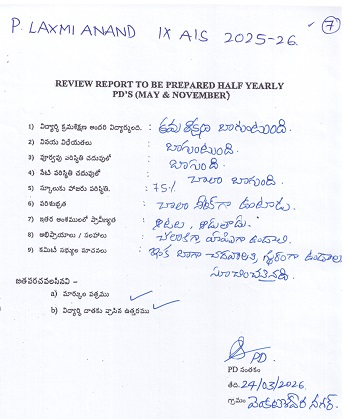 P. LAXMI ANAND IX AIS 2025-26.
7
REVIEW REPORT TO BE PREPARED HALF YEARLY
PD'S (MAY & NOVEMBER)
1) విద్యార్థి క్రమశిక్షణ అందరి విద్యార్థులంది. : క్రమ శిక్షణ బాగుంటుంది.
2) వినయ విధేయతలు : బాగుంటుంది.
3) పూర్వపు పరిస్థితి చదువులో : బాగుంది.
4) నేటి పరిస్థితి చదువులో : చాలా బాగుంది.
5) స్కూలుకు హాజరు పరిస్థితి. : 75%
6) పరిశుభ్రత : చాలా నీట్‌గా ఉంటాడు.
7) ఇతర అంశములలో ప్రావీణ్యత : ఆటలు, ఆడుతాడు.
8) అభిప్రాయాలు / సలహాలు : చలాకీగా హుషారుగా ఉండాలి.
9) కమిటీ సభ్యుల సూచనలు : ఇంకా బాగా చదవాలని, స్థిరంగా ఉండాలని
సూచించనైనది.
జతపరచవలసినవి –
a) మార్కుల పత్రము
b) విద్యార్థి దాతకు వ్రాసిన ఉత్తరము
PD
PD సంతకం
తేది. 24/03/2026.
గ్రామం వెంకటేశ్వర నగర్.